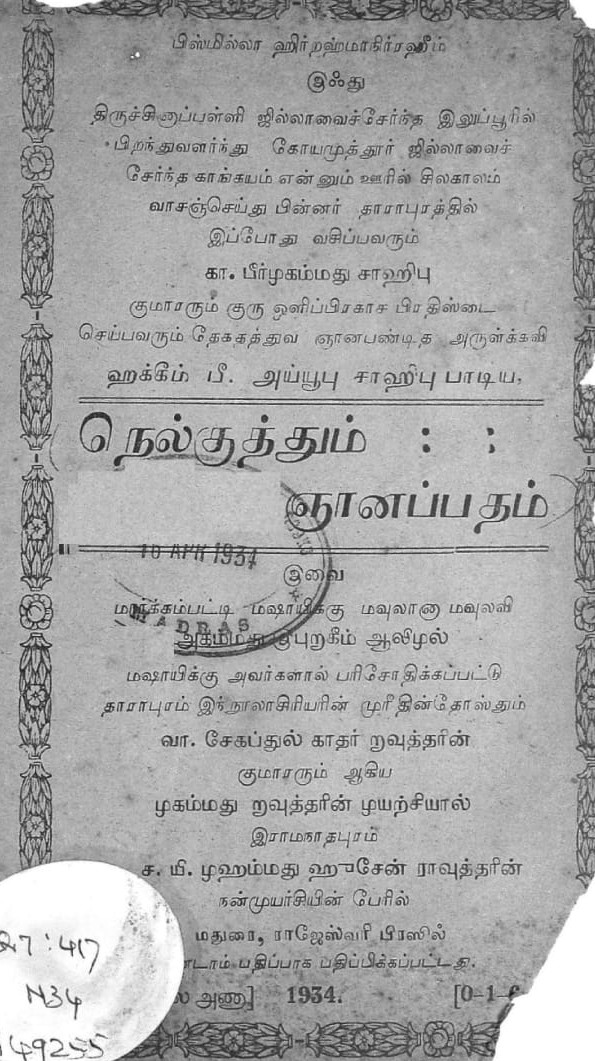 பிஸ்மில்லா ஹிர்றஹ்மானிர்ரஹீம்
இஃது
திருச்சினாப்பள்ளி ஜில்லாவைச்சேர்ந்த இலுப்பூரில்
பிறந்துவளர்ந்து கோயமுத்தூர் ஜில்லாவைச்
சேர்ந்த காங்கயம் என்னும் ஊரில் சிலகாலம்
வாசஞ்செய்து பின்னர் தாராபுரத்தில்
இப்போது வசிப்பவரும்
கா. பீர்முகம்மது சாஹிபு
குமாரரும் குரு ஒளிப்பிரகாச பிரதிஸ்டை
செய்பவரும் தேகதத்துவ ஞானபண்டித அருள்க்கவி
ஹக்கீம் பீ. அய்யூபு சாஹிபு பாடிய,
நெல்குத்தும் : :
ஞானப்பதம்
10 APR 1934
MADRAS
இவை
மஷாயிக்கு மவுலானா மவுலவி
ஆலிமுல்
மஷாயிக்கு அவர்களால் பரிசோதிக்கப்பட்டு
தாராபுரம் இந்நூலாசிரியரின் முரீதின்தோஸ்தும்
வா. சேகப்துல் காதர் றவுத்தரின்
குமாரரும் ஆகிய
முகம்மது றவுத்தரின் முயற்சியால்
இராமநாதபுரம்
ச. யி. முஹம்மது ஹுசேன் ராவுத்தரின்
நன்முயர்சியின் பேரில்
மதுரை, ராஜேஸ்வரி பிரஸில்
பதிப்பாக பதிப்பிக்கப்பட்டது.
அணா] 1934. [0-1-
27:417
N34
149255